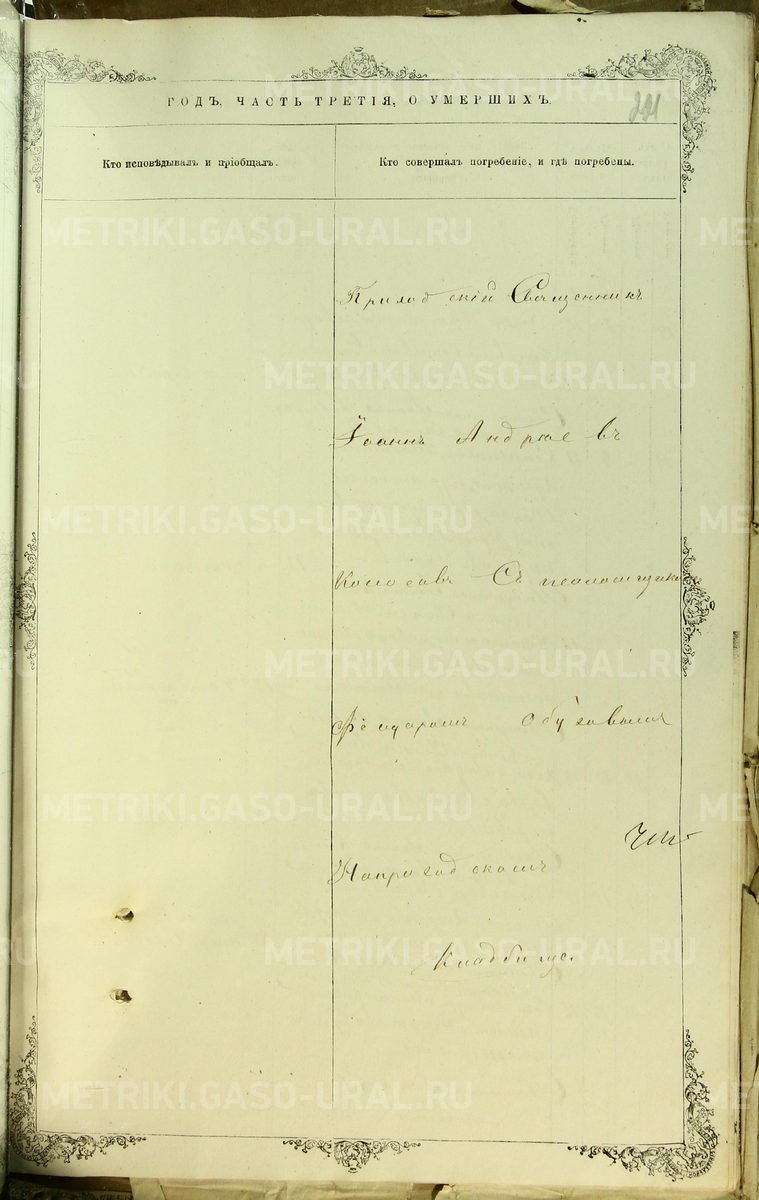 ГОДЪ, ЧАСТЬ ТРЕТІЯ, О УМЕРШИХЪ.
Кто исповѣдывалъ и пріобщалъ.
Кто совершалъ погребеніе, и гдѣ погребены.
Приходскій Священникъ
Іоаннъ Андреевъ
Колосовъ Съ псаломщико
Ѳеодоромъ
На приходскомъ
Кладбище.
METRIKI.GASO-URAL.RU